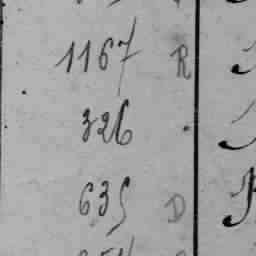 1167 R
326 .
635 D